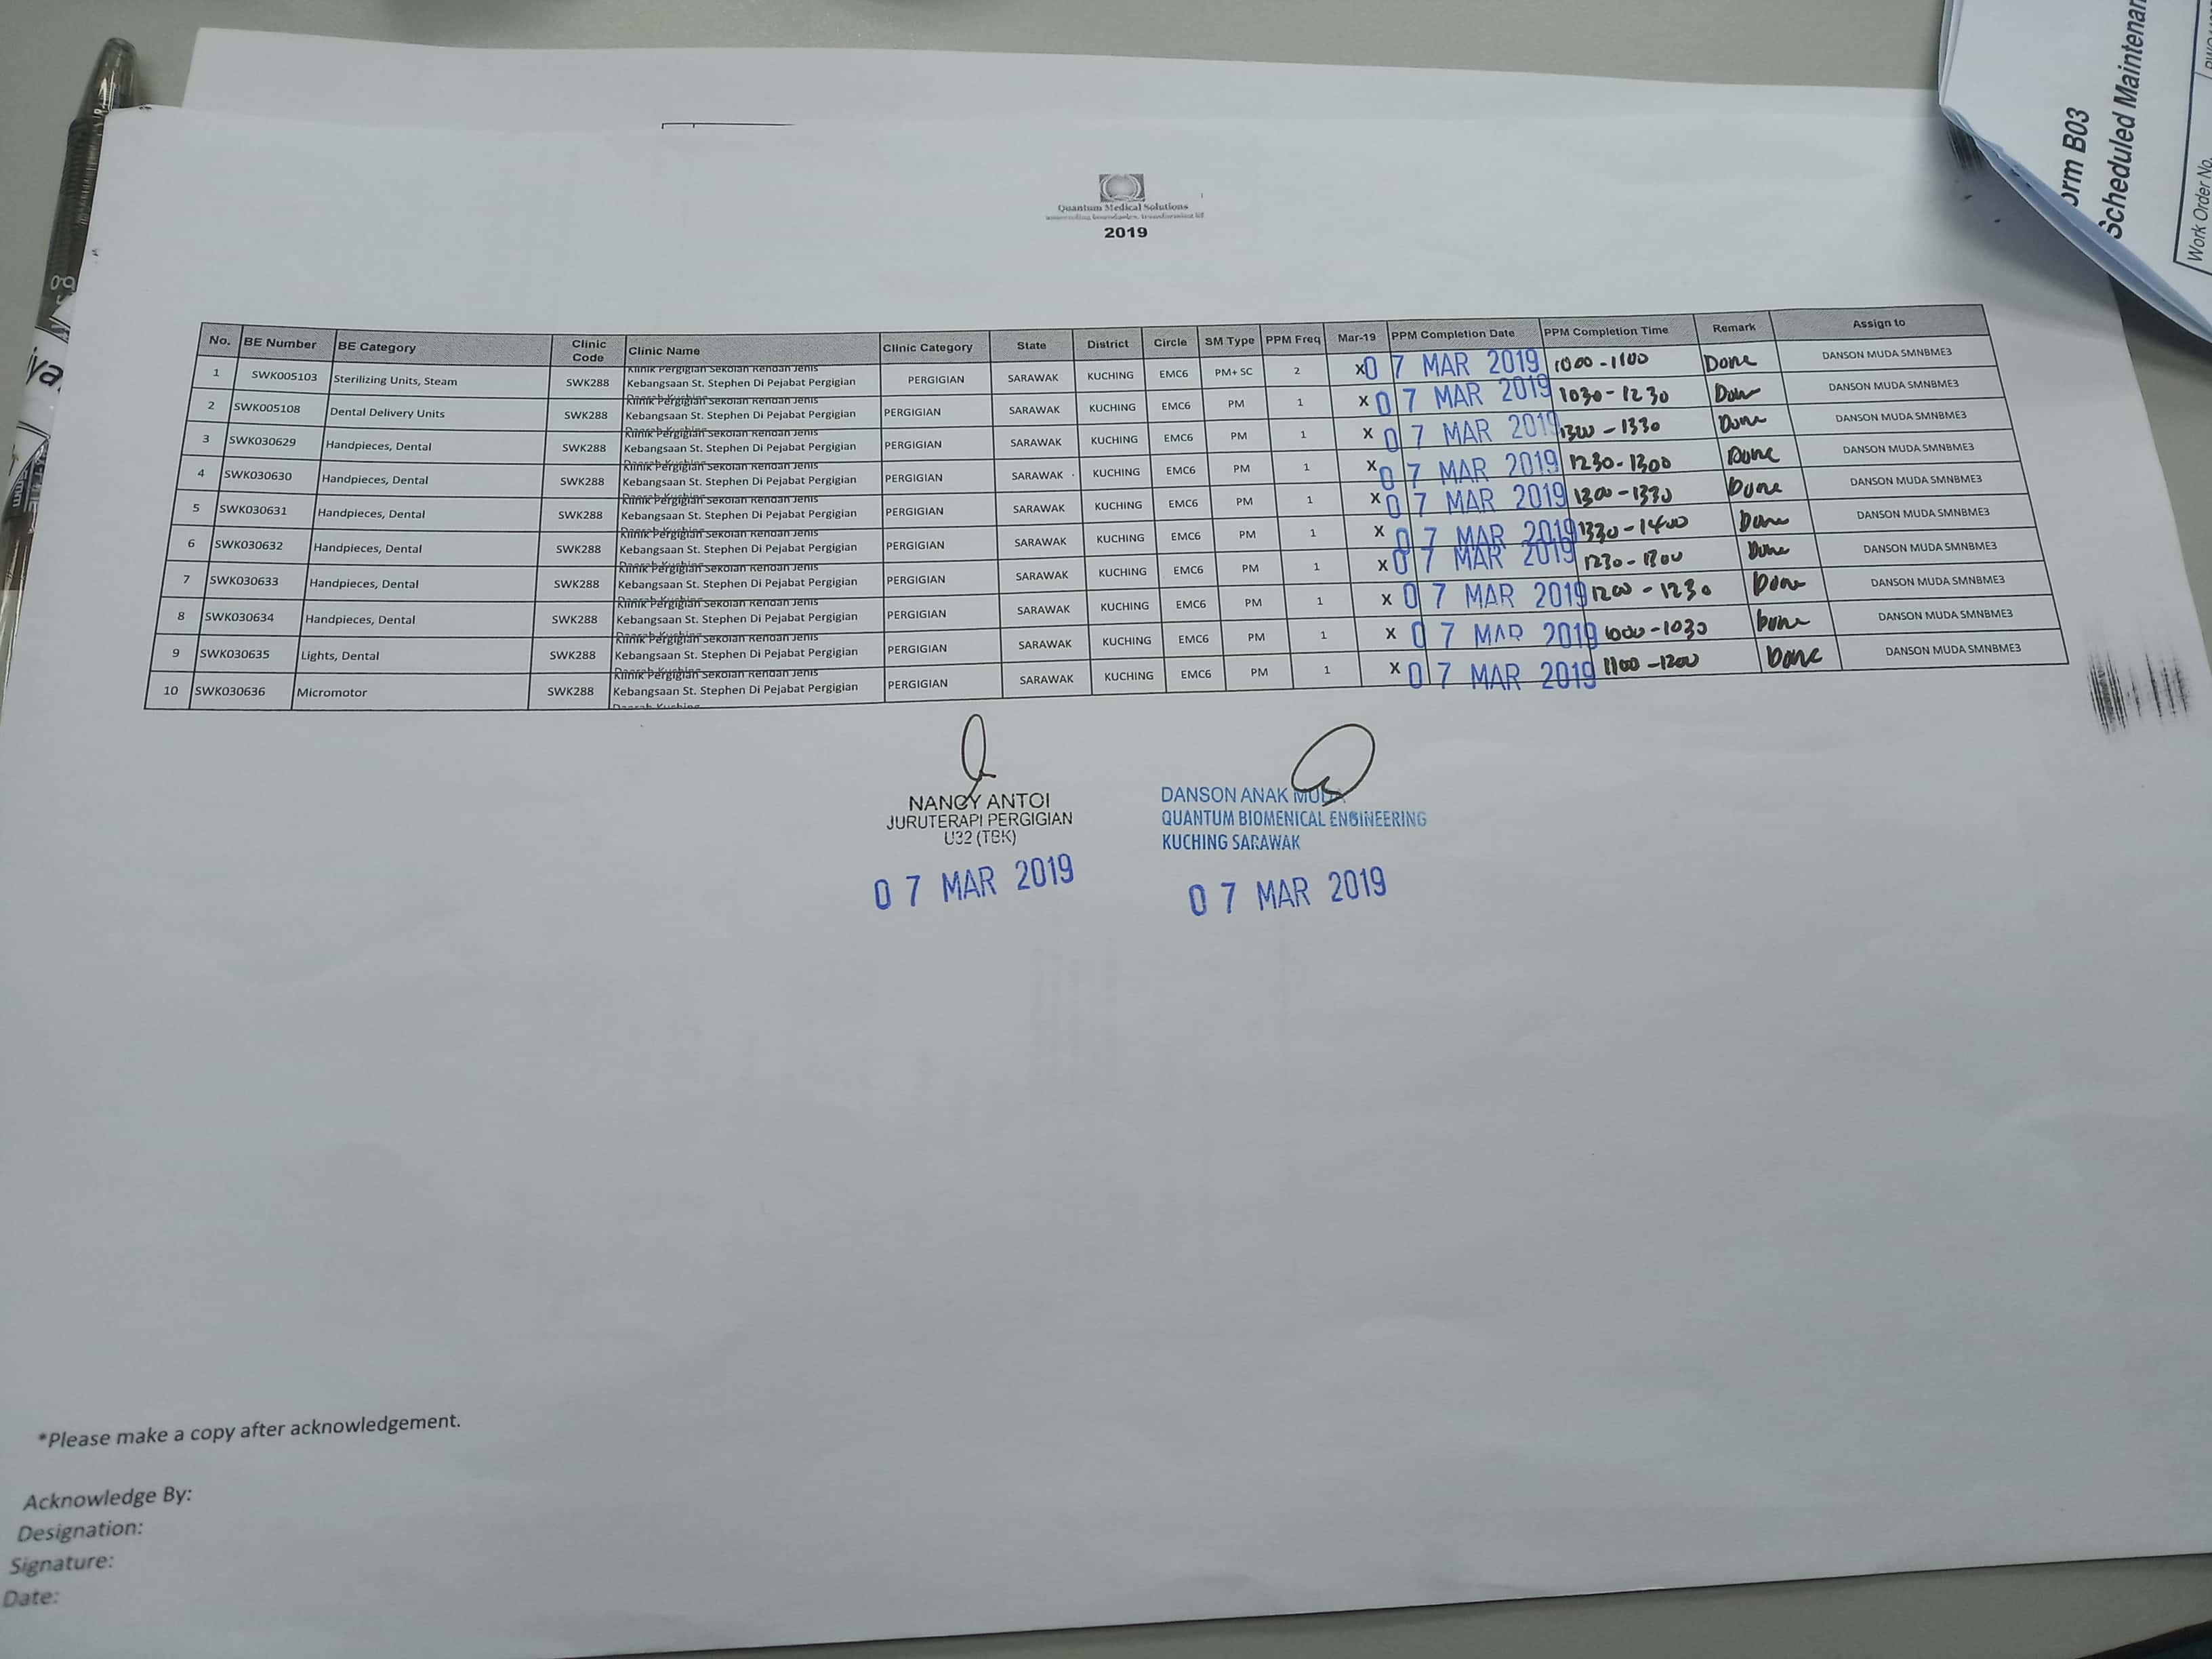 Form B03
Scheduled Maintenan
Work Order No.
Quantum Medical Solutions
2019
No. BE Number BE Category Clinic Code Clinic Name Clinic Category State District Circle SM Type PPM Freq Mar-19 PPM Completion Date PPM Completion Time Remark Assign to
1 SWK005103 Sterilizing Units, Steam SWK288 Klinik Pergigian Sekolah Rendah Jenis Kebangsaan St. Stephen Di Pejabat Pergigian Daerah Kuching PERGIGIAN SARAWAK KUCHING EMC6 PM+ SC 2 X 07 MAR 2019 1000-1100 Done DANSON MUDA SMNBME3
2 SWK005108 Dental Delivery Units SWK288 Klinik Pergigian Sekolah Rendah Jenis Kebangsaan St. Stephen Di Pejabat Pergigian Daerah Kuching PERGIGIAN SARAWAK KUCHING EMC6 PM 1 X 07 MAR 2019 1030-1230 Done DANSON MUDA SMNBME3
3 SWK030629 Handpieces, Dental SWK288 Klinik Pergigian Sekolah Rendah Jenis Kebangsaan St. Stephen Di Pejabat Pergigian Daerah Kuching PERGIGIAN SARAWAK KUCHING EMC6 PM 1 X 07 MAR 2019 1300-1330 Done DANSON MUDA SMNBME3
4 SWK030630 Handpieces, Dental SWK288 Klinik Pergigian Sekolah Rendah Jenis Kebangsaan St. Stephen Di Pejabat Pergigian Daerah Kuching PERGIGIAN SARAWAK KUCHING EMC6 PM 1 X 07 MAR 2019 1230-1300 Done DANSON MUDA SMNBME3
5 SWK030631 Handpieces, Dental SWK288 Klinik Pergigian Sekolah Rendah Jenis Kebangsaan St. Stephen Di Pejabat Pergigian Daerah Kuching PERGIGIAN SARAWAK KUCHING EMC6 PM 1 X 07 MAR 2019 1300-1330 Done DANSON MUDA SMNBME3
6 SWK030632 Handpieces, Dental SWK288 Klinik Pergigian Sekolah Rendah Jenis Kebangsaan St. Stephen Di Pejabat Pergigian Daerah Kuching PERGIGIAN SARAWAK KUCHING EMC6 PM 1 X 07 MAR 2019 1330-1400 Done DANSON MUDA SMNBME3
7 SWK030633 Handpieces, Dental SWK288 Klinik Pergigian Sekolah Rendah Jenis Kebangsaan St. Stephen Di Pejabat Pergigian Daerah Kuching PERGIGIAN SARAWAK KUCHING EMC6 PM 1 X 07 MAR 2019 1230-1300 Done DANSON MUDA SMNBME3
8 SWK030634 Handpieces, Dental SWK288 Klinik Pergigian Sekolah Rendah Jenis Kebangsaan St. Stephen Di Pejabat Pergigian Daerah Kuching PERGIGIAN SARAWAK KUCHING EMC6 PM 1 X 07 MAR 2019 1200-1230 Done DANSON MUDA SMNBME3
9 SWK030635 Lights, Dental SWK288 Klinik Pergigian Sekolah Rendah Jenis Kebangsaan St. Stephen Di Pejabat Pergigian Daerah Kuching PERGIGIAN SARAWAK KUCHING EMC6 PM 1 X 07 MAR 2019 1000-1030 Done DANSON MUDA SMNBME3
10 SWK030636 Micromotor SWK288 Klinik Pergigian Sekolah Rendah Jenis Kebangsaan St. Stephen Di Pejabat Pergigian Daerah Kuching PERGIGIAN SARAWAK KUCHING EMC6 PM 1 X 07 MAR 2019 1100-1200 Done DANSON MUDA SMNBME3
NANCY ANTOI
JURUTERAPI PERGIGIAN
U32 (TBK)
07 MAR 2019
DANSON ANAK MUDA
QUANTUM BIOMENICAL ENGINEERING
KUCHING SARAWAK
07 MAR 2019
*Please make a copy after acknowledgement.
Acknowledge By:
Designation:
Signature:
Date: